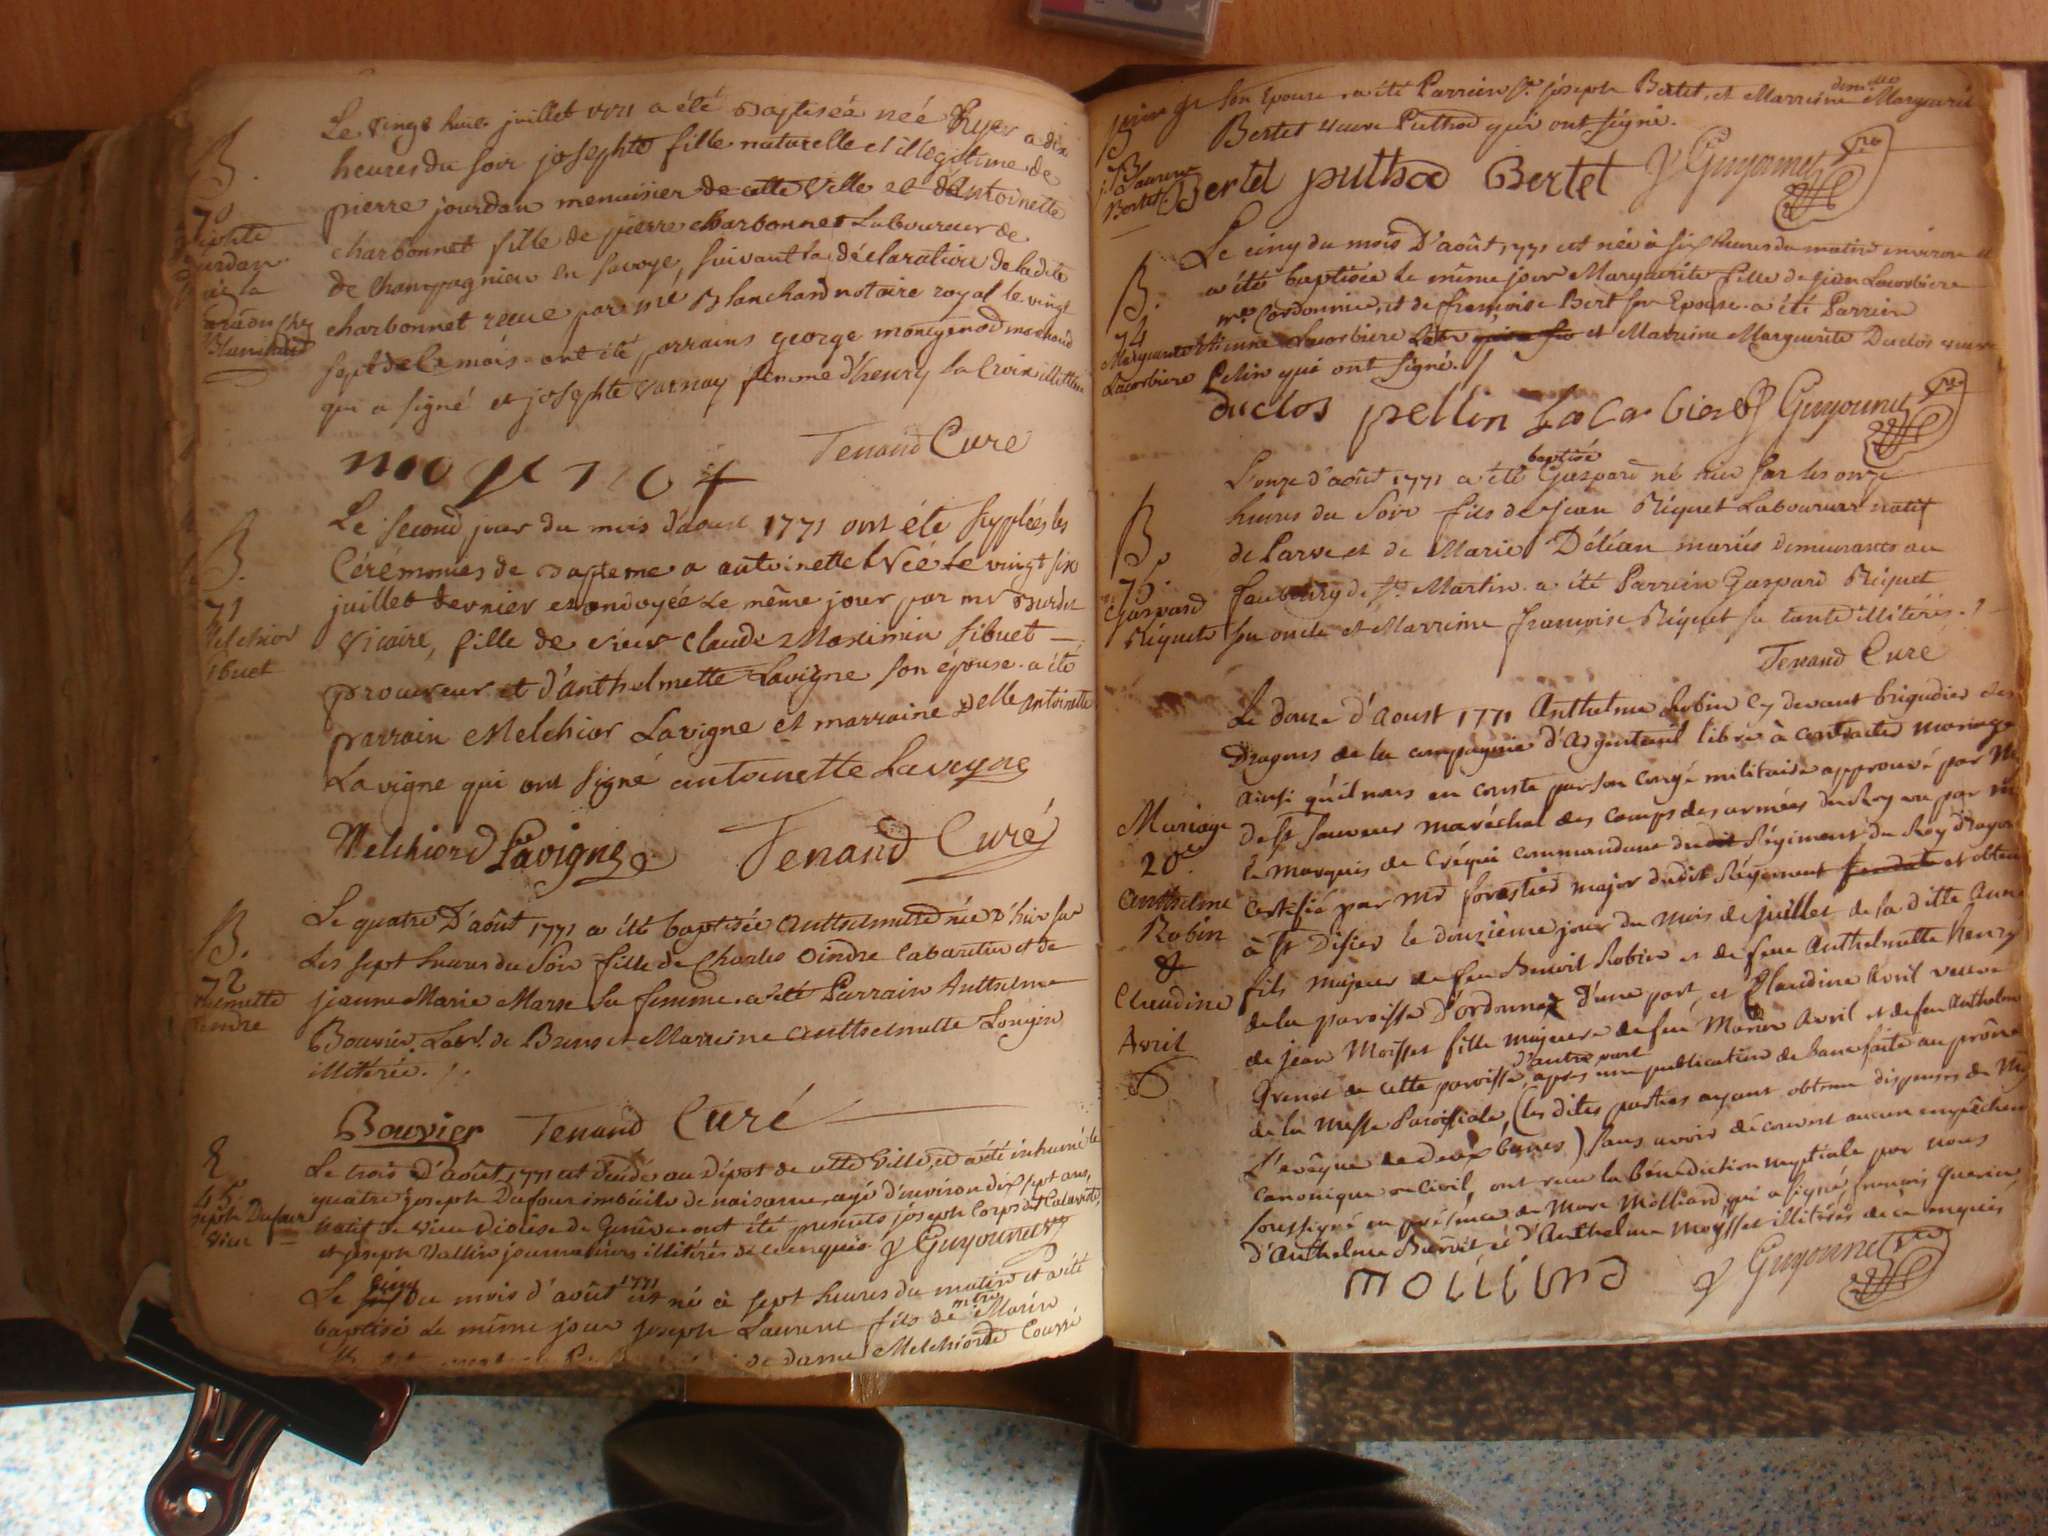 B.
70
Le vingt huit juillet 1771 a été Baptisée née hyer a dix
heures du soir josephte fille naturelle et illegitime de
pierre jourdan menuisier de cette Ville et d'Antoinette
charbonnet fille de pierre charbonnet Laboureur de
de Champagnieu en Savoye, suivant la déclaration de ladite
charbonnet reçue par me Blanchard notaire royal le vingt
sept de ce mois. ont été parrains george montgenod marchand
qui a signé et josephte varnay femme d'henry la Croix illitérée
Tenand Curé
B.
71
Melchior
Sibuet
Le second jour du mois d'aoust 1771 ont été supplées les
Cérémonies de Bapteme a antoinette Née le vingt six
juillet dernier et ondoyée le même jour par mr Burdet
Vicaire, fille de sieur Claude Maximin Sibuet
procureur et d'anthelmette Lavigne son épouse. a été
parrain Melchior Lavigne et marraine Delle antoinette
Lavigne qui ont signé antoinette Lavigne
Melchiord Lavigne Tenand Curé
B.
72
Le quatre D'août 1771 a été baptisée anthelmette née d'hier sur
les sept heures du Soir fille de Charles Oindre Cabaretier et de
jeanne Marie Marse sa femme. a été Parrain Anthelme
Bouvier Labr. de Brens et Marreine anthelmette Longin
illitérée.
Bouvier Tenand Curé
45
joseph Dufour
Le trois D'août 1771 est décédé au dépot de cette Ville, et a été inhumé le
quatre joseph Dufour imbécile de naissance, agé d'environ dix sept ans,
natif de vieu Diocèse de Genêve ont été présents joseph Corps et Calariste,
et joseph Vallin journaliers illitérés de ce enquis J Guyonnet vre
Le cinq du mois d'août 1771 est né à sept heures du matin et a été
baptisé le même jour joseph Laurent fils de mtre Marin
de dame Melchionde Courré
son Epouse. a été Parrein Sr. joseph Bertet, et Marreine demlle Marguerite
Bertet veuve Puthod qui ont signé.
B
73
Laurent
Bertet
Bertet puthod Bertet J Guyonnet vre
B.
74
Marguerite
Lacorbiere
Le cinq du mois D'août 1771 est née à six heures du matin environ et
a été baptisée le même jour Marguerite fille de jean Lacorbiere
me. Cordonnier, et de françoise Bert son Epouse. a été Parrein
Etienne Lacorbiere Labr et Marreine Marguerite Duclos veuve
Pelin qui ont signé.
duclos pellin Lacorbiere J Guyonnet vre
B.
75.
Gaspard
Riquet
L'onze d'août 1771 a été baptisé Gaspard né hier sur les onze
heures du Soir fils de jean Riquet Laboureur natif
de Parve et de Marie Déléan mariés demeurants au
faubourg de St. Martin. a été Parrein Gaspard Riquet
son oncle et Marreine françoise Riquet sa tante illitérés.
Tenand Curé
Mariage
20e
Anthelme
Robin
&
Claudine
Avril
Le douze d'aoust 1771 Anthelme Robin cy devant brigadier des
Dragons de la compagnie d'Argenteuil libre à contracter mariage
ainsi qu'il nous en conste par son congé militaire approuvé par Mr
de St Sauveur maréchal des camps des armées du Roy vu par Mr
le marquis de Créqui commandant dudit Régiment du Roy dragon
certifié par Mr forestier major dudit Régiment et obtenu
à St Disier le douzième jour du mois de juillet de la ditte année
fils majeur de feu Benoit Robin et de feue Anthelmette henry
de la paroisse d'ordonnaz d'une part, et Claudine Avril veuve
de jean Moisset fille majeure de feu Marin Avril et de feue Anthelme
Grenet de cette paroisse d'autre part après une publication de banc faite au prône
de la Messe Paroissiale, (les dites parties ayant obtenu dispenses de Mgr
L'evêque de deux bancs) sans avoir découvert aucun empêchement
canonique ou civil, ont reçu la bénédiction nuptiale par nous
soussigné en présence de Marc Molliard qui a signé françois Guerin
d'Anthelme Benoit et d'Anthelme Moysset illitérés de ce enquis
molliard J Guyonnet vre